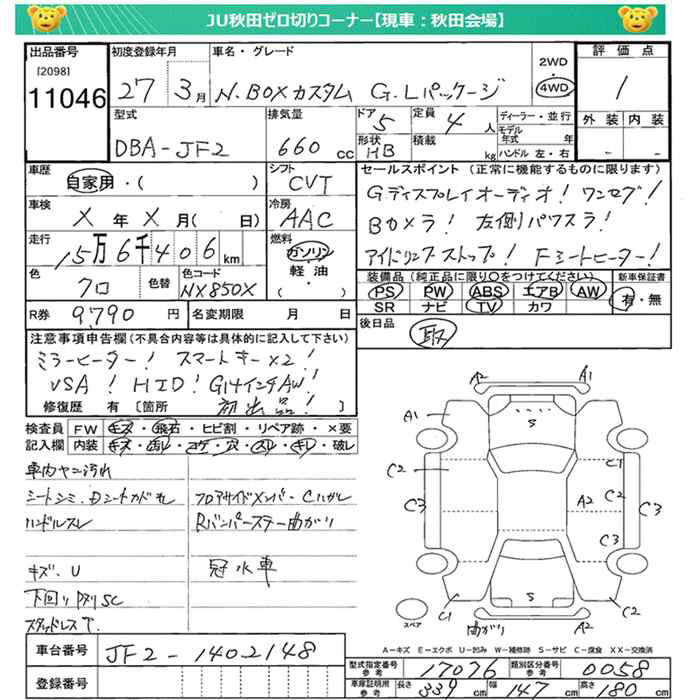 JU秋田ゼロ切りコーナー【現車：秋田会場】
出品番号 初度登録年月 車名・グレード 2WD 評価点
[2098] 11046 27 3月 N.BOXカスタム G.Lパッケージ 4WD 1
型式 排気量 ドア 定員 ディーラー・並行 外装 内装
DBA-JF2 660cc 5 4人 モデル年式 年
形状 HB 積載 kg ハンドル 左・右 - -
車歴 シフト セールスポイント（正常に機能するものに限ります）
自家用・( ) CVT Gディスプレイオーディオ！ワンセグ！
車検 冷房 Bカメラ！左側パワスラ！
X年X月( 日) AAC アイドリングストップ！Fシートヒーター！
走行 燃料
15万6千406km ガソリン・軽油・( )
色 色替 色コード 装備品（純正品に限り○をつけてください） 新車保証書
クロ NX850X PS PW ABS エアB AW 有・無
SR ナビ TV カワ
R券 9,790円 名変期限 月 日 後日品
取
注意事項申告欄（不具合内容等は具体的に記入して下さい）
ミラーヒーター！スマートキー×2！
VSA！HID！G14インチAW！
修復歴 有 [箇所 初出品！
検査員記入欄 FW キズ・飛石・ヒビ割・リペア跡・×要
内装 キズ・汚レ・コゲ・穴・スレ・キレ・破レ
車内ヤニ汚れ
シートシミ、Dシート
フロアサイドメンバーCハガレ
ハンドルスレ Rバンパーステー曲がり
キズ、U 冠水車
下回りサビSC
スタッドレスT.
A2 A1
A1 S
C2 C1
C3 A2 C3
C3
S
C1 曲がり A2 C2
スペア
A－キズ E－エクボ U－凹み W－補修跡 S－サビ C－腐食 XX－交換済
車台番号 JF2-1402148
登録番号
型式指定番号 参考 17076 類別区分番号 参考 0058
車庫証明用 参考 長さ 339cm 幅 147cm 高さ 180cm